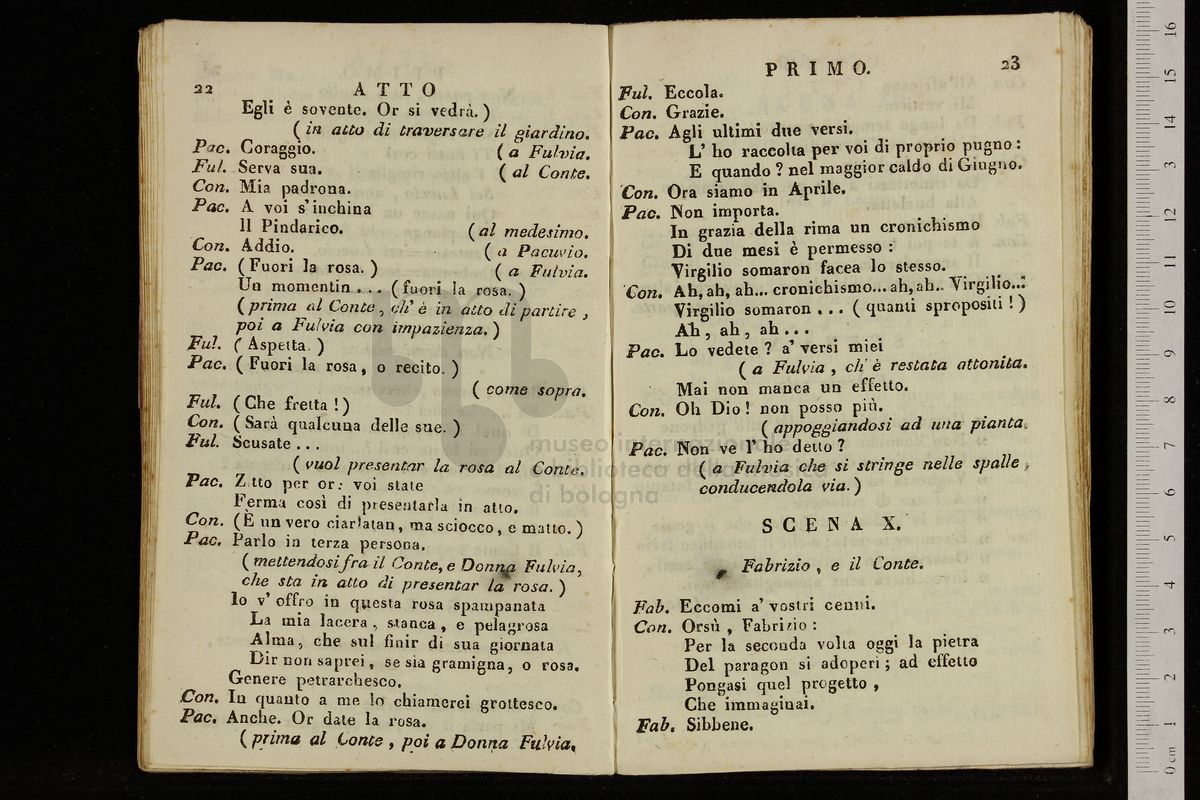 22 ATTO
Egli è sovente. Or si vedrà. )
( in atto di traversare il giardino.
Pac. Coraggio. ( a Fulvia.
Ful. Serva sua. ( al Conte.
Con. Mia padrona.
Pac. A voi s'inchina
Il Pindarico. ( al medesimo.
Con. Addio. ( a Pacuvio.
Pac. ( Fuori la rosa. ) ( a Fulvia.
Un momentin . . . ( fuori la rosa. )
( prima al Conte, ch' è in atto di partire ,
poi a Fulvia con impazienza. )
Ful. ( Aspetta. )
Pac. ( Fuori la rosa, o recito. )
( come sopra.
Ful. ( Che fretta ! )
Con. ( Sarà qualcuna delle sue. )
Ful. Scusate . . .
( vuol presentar la rosa al Conte.
Pac. Zitto per or: voi state
Ferma così di presentarla in atto.
Con. ( È un vero ciarlatan, ma sciocco, e matto. )
Pac. Parlo in terza persona.
( mettendosi fra il Conte, e Donna Fulvia,
che sta in atto di presentar la rosa. )
Io v' offro in questa rosa spampanata
La mia lacera, stanca, e pelagrosa
Alma, che sul finir di sua giornata
Dir non saprei, se sia gramigna, o rosa.
Genere petrarchesco.
Con. In quanto a me lo chiamerei grottesco.
Pac. Anche. Or date la rosa.
( prima al Conte, poi a Donna Fulvia.
PRIMO. 23
Ful. Eccola.
Con. Grazie.
Pac. Agli ultimi due versi.
L' ho raccolta per voi di proprio pugno :
E quando ? nel maggior caldo di Giugno.
Con. Ora siamo in Aprile.
Pac. Non importa.
In grazia della rima un cronichismo
Di due mesi è permesso :
Virgilio somaron facea lo stesso.
Con. Ah, ah, ah... cronichismo... ah, ah.. Virgilio...
Virgilio somaron . . . ( quanti spropositi ! )
Ah, ah, ah . . .
Pac. Lo vedete ? a' versi miei
( a Fulvia, ch' è restata attonita.
Mai non manca un effetto.
Con. Oh Dio ! non posso più.
( appoggiandosi ad una pianta.
Pac. Non ve l' ho detto ?
( a Fulvia che si stringe nelle spalle,
conducendola via. )
SCENA X.
Fabrizio, e il Conte.
Fab. Eccomi a' vostri cenni.
Con. Orsù, Fabrizio :
Per la seconda volta oggi la pietra
Del paragon si adoperi ; ad effetto
Pongasi quel progetto,
Che immaginai.
Fab. Sibbene.
museo internazionale
biblioteca della musica
di bologna
0 cm 1 2 3 4 5 6 7 8 9 10 11 12 13 14 15 16